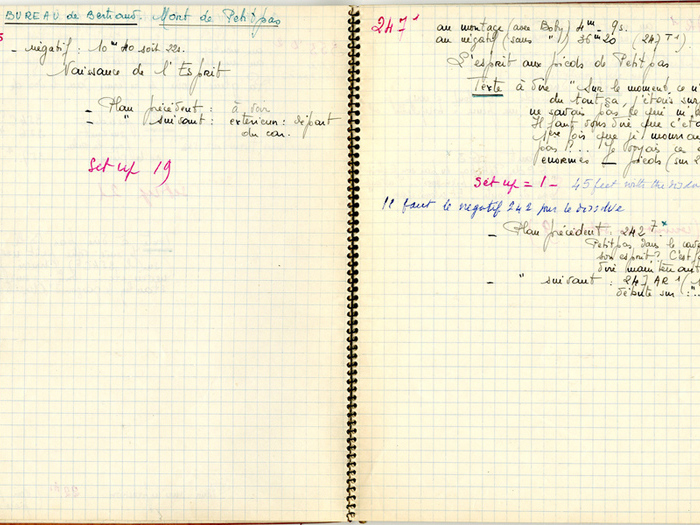 BUREAU de Bertrand. Mort de Petitpas
- négatif : 10 m 40 soit 22s.
Naissance de l'Esprit
- Plan précédent : à voir
- " suivant : exterieur : départ
du car.
Set up 19
247¹ au montage (avec Boby) 4m - 9s.
au négatif (sans " ) 36m20 (247 T1)
L'esprit aux pieds de Petitpas
Texte à dire " Sur le moment, ce n'
du tout ça, j'étais sur
ne savais pas ce qui m'
Il faut vous dire que c'éta
1ère fois que je mourai
pas !... Je voyais ce
enormes — pieds (sur
Set up = 1 - 45 feet with the
Il faut le négatif 242 pour le dissolve
- Plan précédent : 242 7 *
Petitpas, dans le
son esprit ? C'est
dire maintenant
- " suivant : 247 AR 1
débute sur : "..